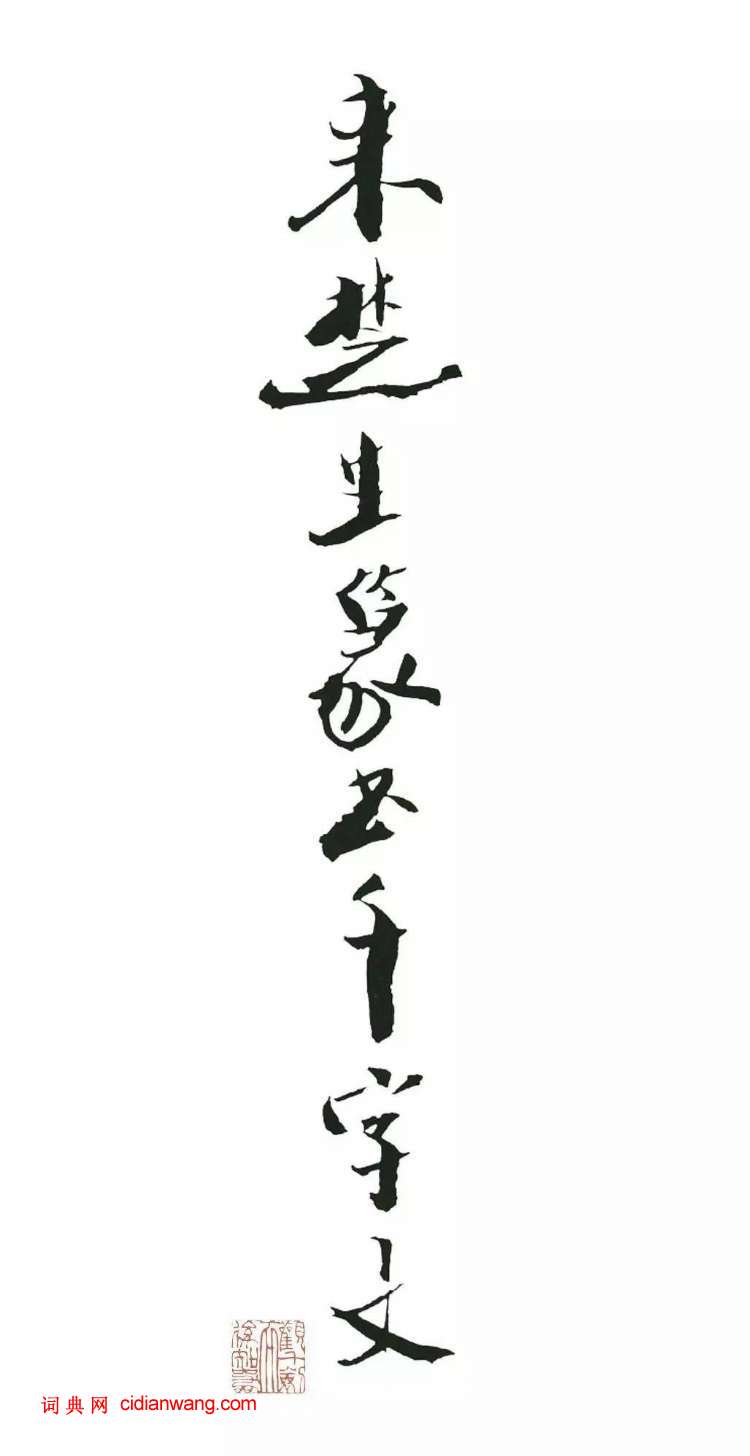 来楚生篆书千字文
词典网 cidianwang.com